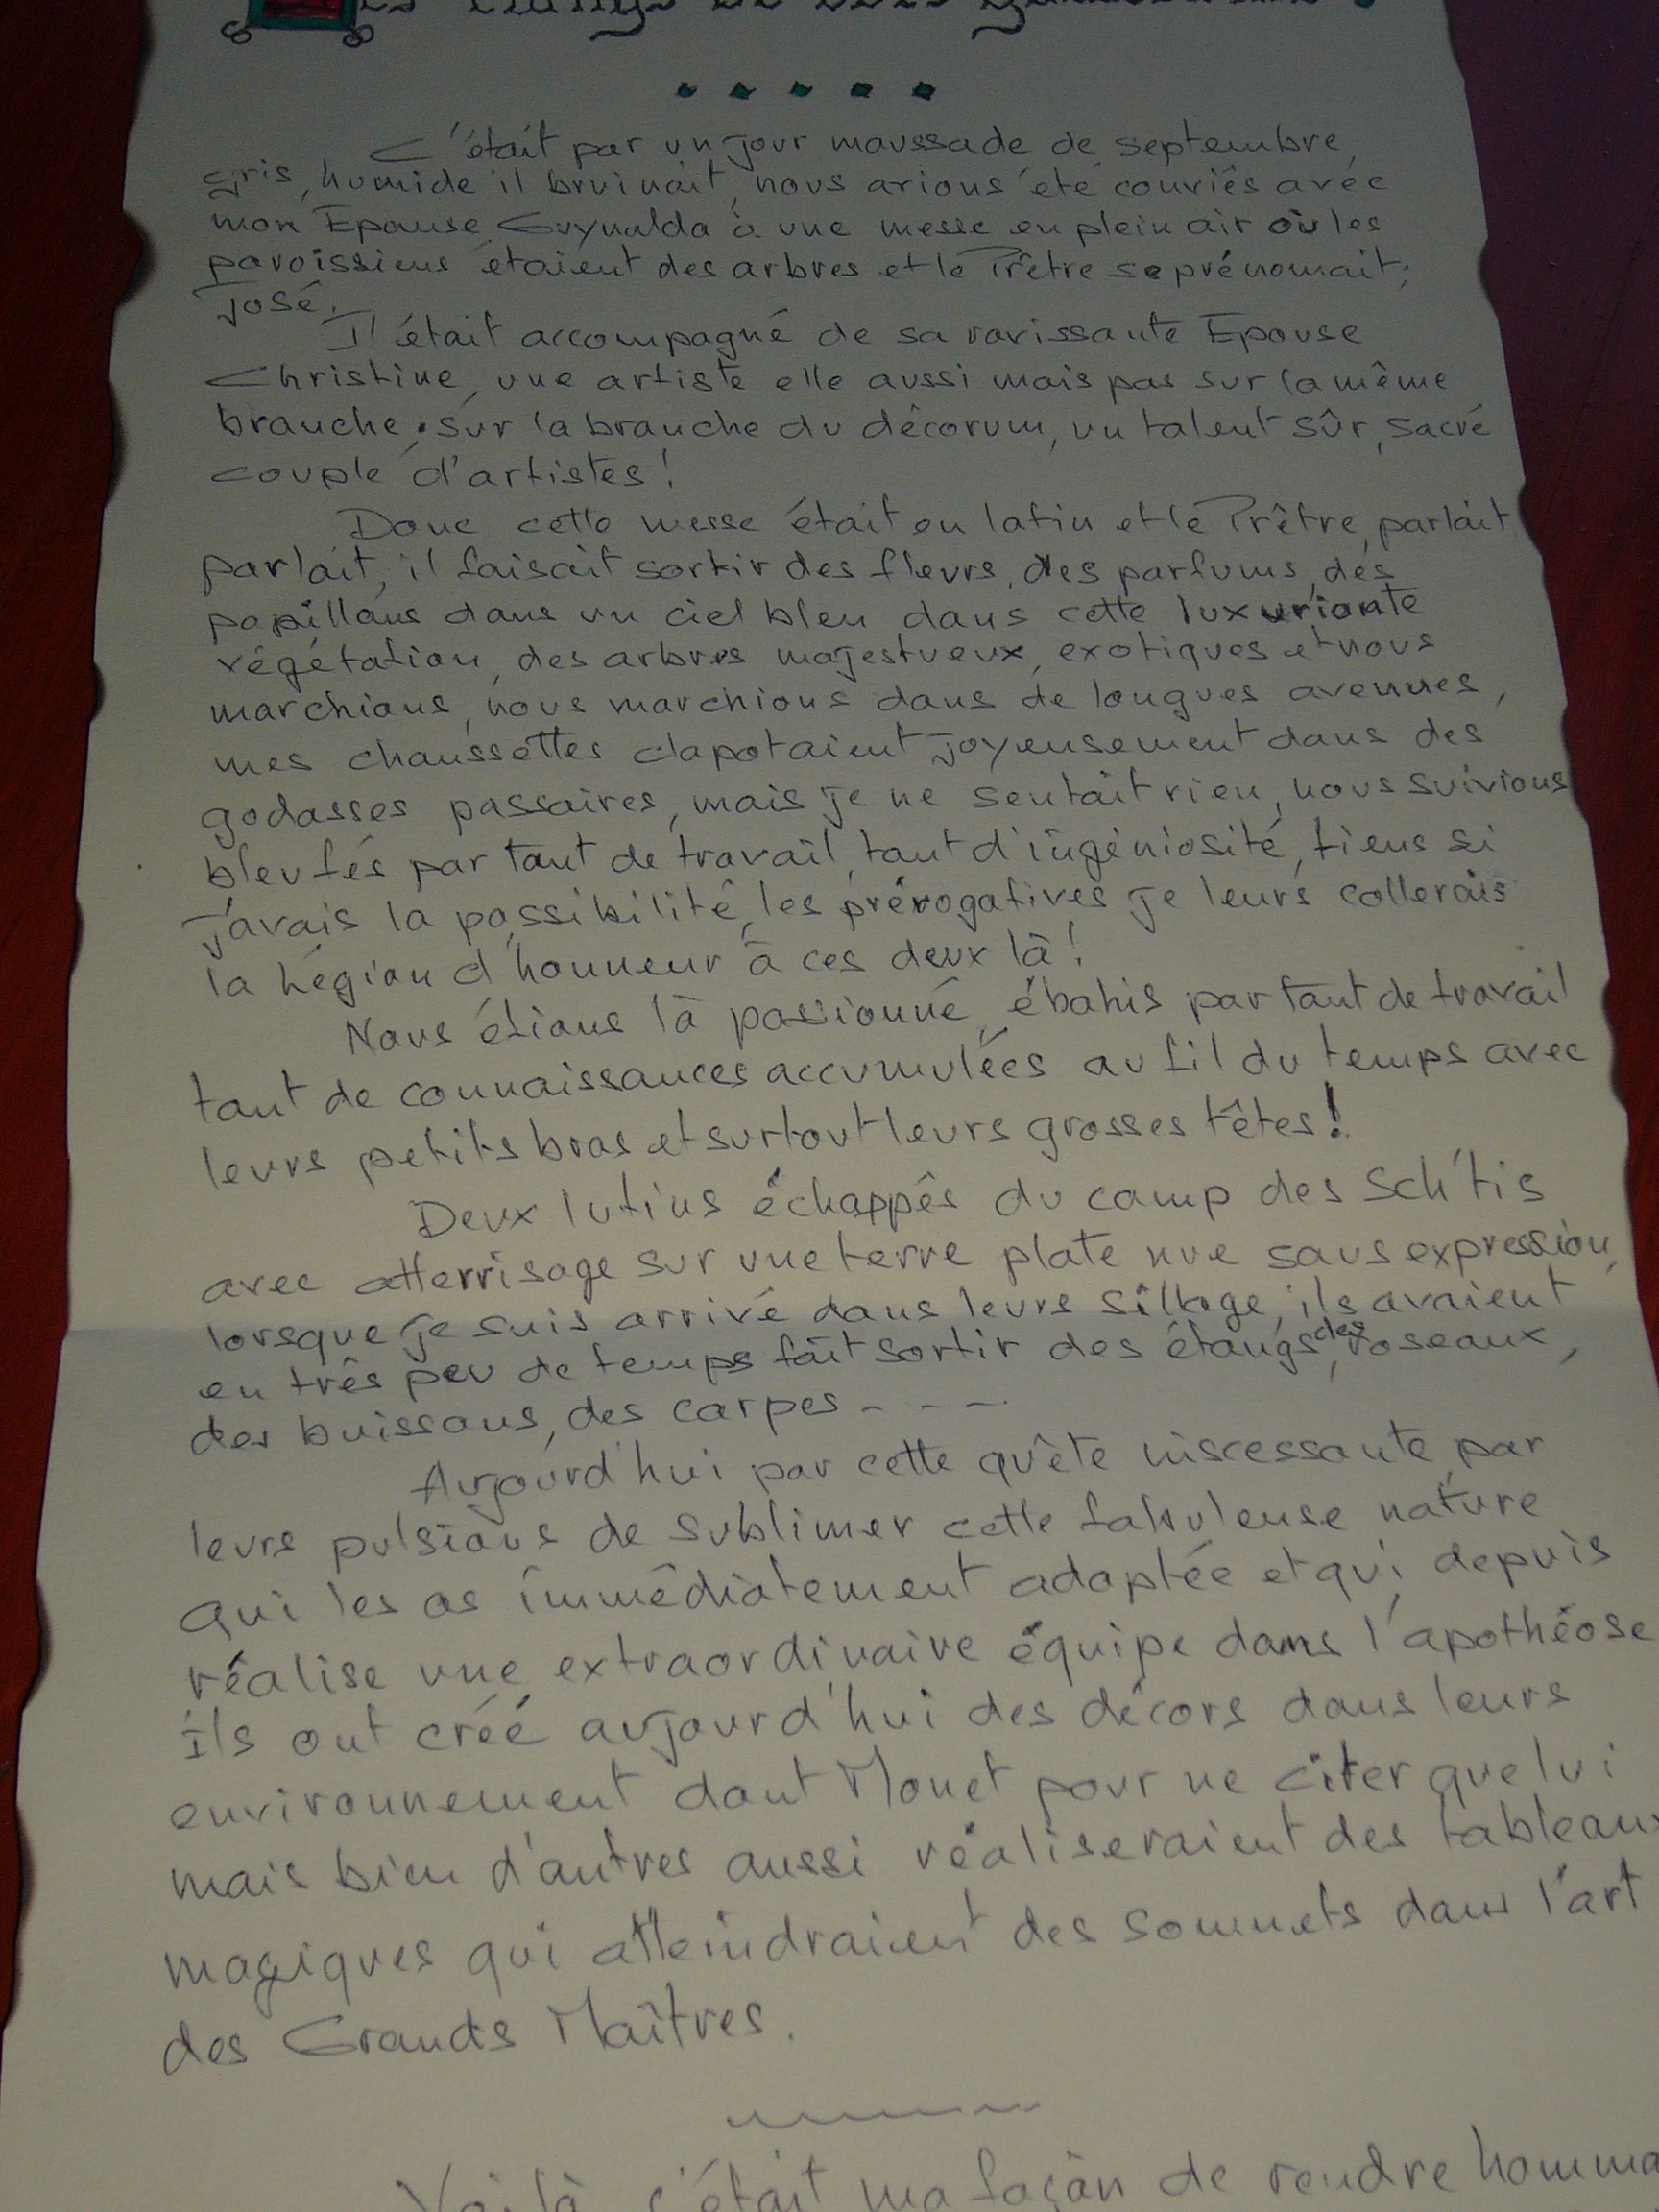 C'était par un jour maussade de septembre,
gris, humide il bruinait, nous avions été conviés avec
mon Epouse Guynalda à une messe en plein air où les
paroissiens étaient des arbres et le Prêtre se prénomait;
José.
Il était accompagné de sa ravissante Epouse
Christine, une artiste elle aussi mais pas sur la même
branche. sur la branche du décorum, un talent sûr, sacré
couple d'artistes!
Donc cette messe était en latin et le Prêtre, parlait
parlait, il faisait sortir des fleurs, des parfums, des
papillons dans un ciel bleu dans cette luxuriante
végétation, des arbres majestueux, exotiques et nous
marchions, nous marchions dans de longues avenues,
mes chaussettes clapotaient joyeusement dans des
godasses passaires, mais je ne sentait rien, nous suivions
bleufés par tant de travail, tant d'ingéniosité, tiens si
j'avais la possibilité, les prérogatives je leurs collerais
la Légion d'honneur à ces deux là!
Nous étions là passionné, ébahis par tant de travail
tant de connaissances accumulées au fil du temps avec
leurs petits bras et surtout leurs grosses têtes!
Deux lutins échappés du camp des Sch'tis
avec atterrisage sur une terre plate nue sans expression,
lorsque je suis arrivé dans leurs sillage, ils avaient
en très peu de temps fait sortir des étangs, des roseaux,
des buissons, des carpes - - -.
Aujourd'hui par cette quête inscessante, par
leurs pulsions de sublimer cette fabuleuse nature
qui les as immédiatement adoptée et qui depuis
réalise une extraordinaire équipe dans l'apothéose
ils ont créé aujourd'hui des décors dans leurs
environnement dont Monet pour ne citer que lui
mais bien d'autres aussi réaliseraient des tableaux
magiques qui atteindraient des sommets dans l'art
des Grands Maîtres.
Voilà c'était ma façon de rendre homma